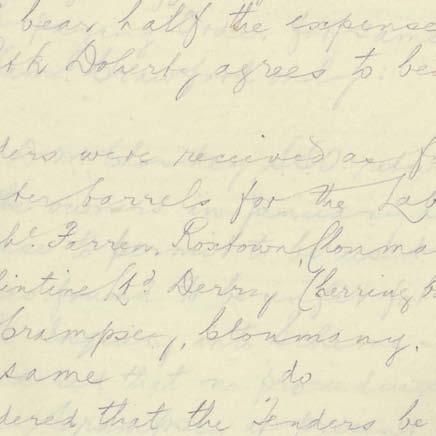 bear half the expense
Doherty agrees to be
ders were received as f
barrels for the Lab
Farren, Roxtown, Clonma
intine Ltd Derry (herring b
Crampsey, Clonmany.
same do
dered that the Tenders be